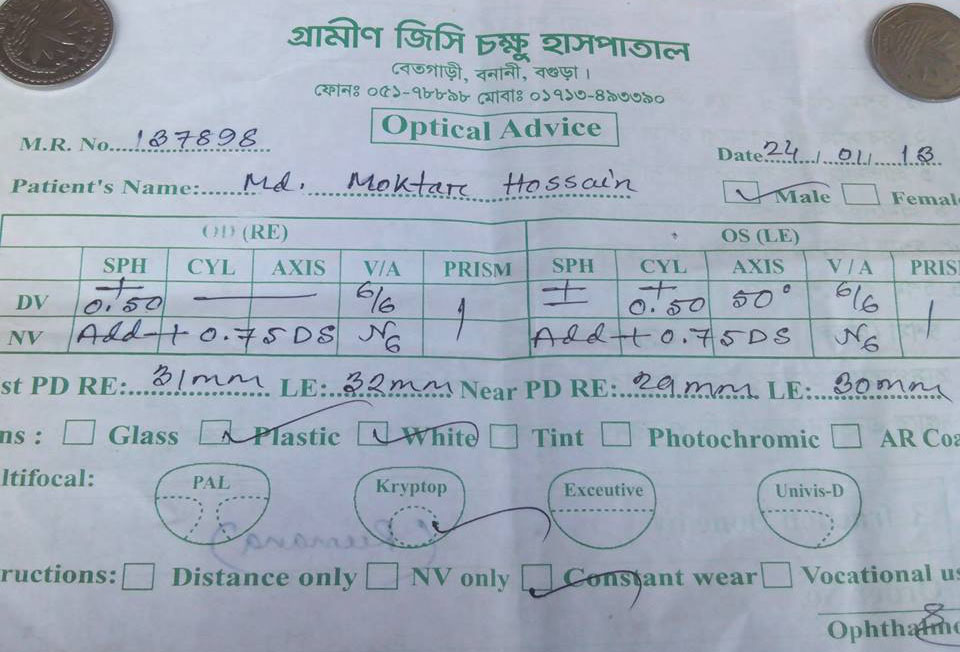 গ্রামীণ জিসি চক্ষু হাসপাতাল
বেতগাড়ী, বনানী, বগুড়া ।
ফোনঃ ০৫১-৭৮৮৯৮ মোবাঃ ০১৭১৩-৪৯৩৩৯০
Optical Advice
M.R. No....137898
Date 24/01/13
Patient's Name:......Md. Moktar Hossain
Male Female
OD (RE) OS (LE)
SPH CYL AXIS V/A PRISM SPH CYL AXIS V/A PRIS
DV + 0.50 — 6/6 ± + 0.50 50° 6/6
NV Add + 0.75 DS N6 Add + 0.75 DS N6
st PD RE: 31mm LE: 32mm Near PD RE: 29mm LE: 30mm
ns : Glass Plastic White Tint Photochromic AR Coa
ltifocal: PAL Kryptop Exceutive Univis-D
ructions: Distance only NV only Constant wear Vocational us
Ophthalmo